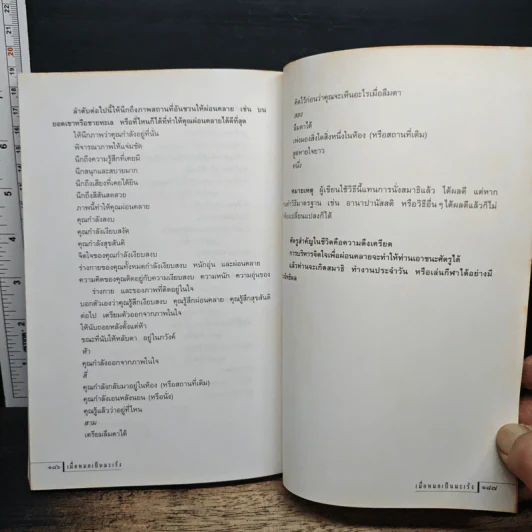 ลำดับต่อไปนี้ให้นึกถึงภาพสถานที่อันชวนให้ผ่อนคลาย เช่น บน
ยอดเขาหรือชายทะเล หรือที่ไหนก็ได้ที่ทำให้คุณผ่อนคลายได้ดีที่สุด
ให้นึกภาพว่าคุณกำลังอยู่ที่นั่น
พิจารณาภาพให้แจ่มชัด
นึกถึงความรู้สึกที่เคยมี
นึกสนุกและสบายมาก
นึกถึงเสียงที่เคยได้ยิน
นึกถึงสีสันสดสวย
ภาพนี้ทำให้คุณผ่อนคลาย
คุณกำลังสงบ
คุณกำลังเงียบสงัด
คุณกำลังสุขสันติ
จิตใจของคุณกำลังเงียบสงบ
ร่างกายของคุณทั้งหมดกำลังเงียบสงบ หนักอุ่น และผ่อนคลาย
ความคิดของคุณคิดอยู่กับความเงียบสงบ ความหนัก ความอุ่นของ
ร่างกาย และของภาพที่คิดอยู่ในใจ
บอกตัวเองว่าคุณรู้สึกเงียบสงบ คุณรู้สึกผ่อนคลาย คุณรู้สึกสุขสันติ
ต่อไป เตรียมตัวออกจากภาพในใจ
ให้นับถอยหลังตั้งแต่ห้า
ขณะที่นับให้หลับตา อยู่ในภวังค์
ห้า
คุณกำลังออกจากภาพในใจ
สี่
คุณกำลังกลับมาอยู่ในห้อง (หรือสถานที่เดิม)
คุณกำลังเอนหลังนอน (หรือนั่ง)
คุณรู้แล้วว่าอยู่ที่ไหน
สาม
เตรียมลืมตาได้
๑๘๖ เมื่อหมอเป็นมะเร็ง
คิดไว้ก่อนว่าคุณจะเห็นอะไรเมื่อลืมตา
สอง
ลืมตาได้
เพ่งมองสิ่งใดสิ่งหนึ่งในห้อง (หรือสถานที่เดิม)
สูดหายใจยาว
หนึ่ง
หมายเหตุ ผู้เขียนใช้วิธีนี้แทนการนั่งสมาธิแล้ว ได้ผลดี แต่หาก
วิธีมาตรฐาน เช่น อานาปานัสสติ หรือวิธีอื่นๆ ได้ผลดีแล้วก็ไม่
เปลี่ยนแปลงก็ได้
ศัตรูสำคัญในชีวิตคือความตึงเครียด
การบริหารจิตใจเพื่อผ่อนคลายจะทำให้ท่านเอาชนะศัตรูได้
แล้วท่านจะเกิดสมาธิ ทำงานประจำวัน หรือเล่นกีฬาได้อย่างมี
เมื่อหมอเป็นมะเร็ง ๑๘๗